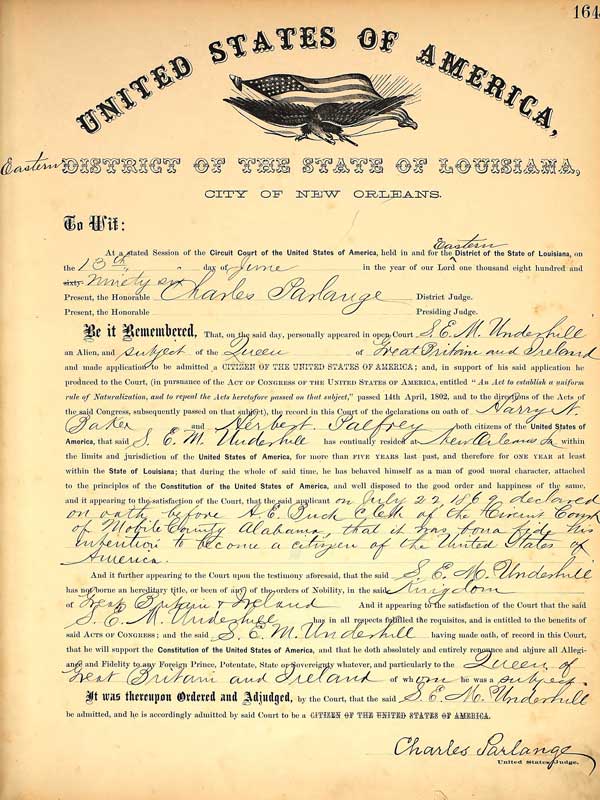 164
UNITED STATES OF AMERICA,
Eastern DISTRICT OF THE STATE OF LOUISIANA,
CITY OF NEW ORLEANS.
To Wit:
At a stated Session of the Circuit Court of the United States of America, held in and for the Eastern District of the State of Louisiana, on
the 13th day of June in the year of our Lord one thousand eight hundred and
sixty- Ninety six
Present, the Honorable Charles Parlange District Judge.
Present, the Honorable Presiding Judge.
Be it Remembered, That, on the said day, personally appeared in open Court S. E. M. Underhill
an Alien, and subject of the Queen of Great Britain and Ireland
and made application to be admitted a CITIZEN OF THE UNITED STATES OF AMERICA; and, in support of his said application he
produced to the Court, (in pursuance of the ACT OF CONGRESS OF THE UNITED STATES OF AMERICA, entitled "An Act to establish a uniform
rule of Naturalization, and to repeal the Acts heretofore passed on that subject," passed 14th April, 1802, and to the directions of the Acts of
the said Congress, subsequently passed on that subject), the record in this Court of the declarations on oath of Harry N.
Baker and Herbert Palfrey both citizens of the United States of
America, that said S. E. M. Underhill has continually resided at New Orleans La within
the limits and jurisdiction of the United States of America, for more than FIVE YEARS last past, and therefore for ONE YEAR at least
within the State of Louisiana; that during the whole of said time, he has behaved himself as a man of good moral character, attached
to the principles of the Constitution of the United States of America, and well disposed to the good order and happiness of the same,
and it appearing to the satisfaction of the Court, that the said applicant on July 22 1869 declared
on oath before A. E. Buck Clerk of the Circuit Court
of Mobile County Alabama, that it was bona fide his
intention to become a citizen of the United States of
America.
And it further appearing to the Court upon the testimony aforesaid, that the said S. E. M. Underhill
has not borne an hereditary title, or been of any of the orders of Nobility, in the said Kingdom
of Great Britain & Ireland And it appearing to the satisfaction of the Court that the said
S. E. M. Underhill has in all respects fulfilled the requisites, and is entitled to the benefits of
said ACTS OF CONGRESS; and the said S. E. M. Underhill having made oath, of record in this Court,
that he will support the Constitution of the United States of America, and that he doth absolutely and entirely renounce and abjure all Allegi-
ance and Fidelity to any Foreign Prince, Potentate, State or Sovereignty whatever, and particularly to the Queen of
Great Britain and Ireland of whom he was a subject.
It was thereupon Ordered and Adjudged, by the Court, that the said S. E. M. Underhill
be admitted, and he is accordingly admitted by said Court to be a CITIZEN OF THE UNITED STATES OF AMERICA.
Charles Parlange
United States Judge.